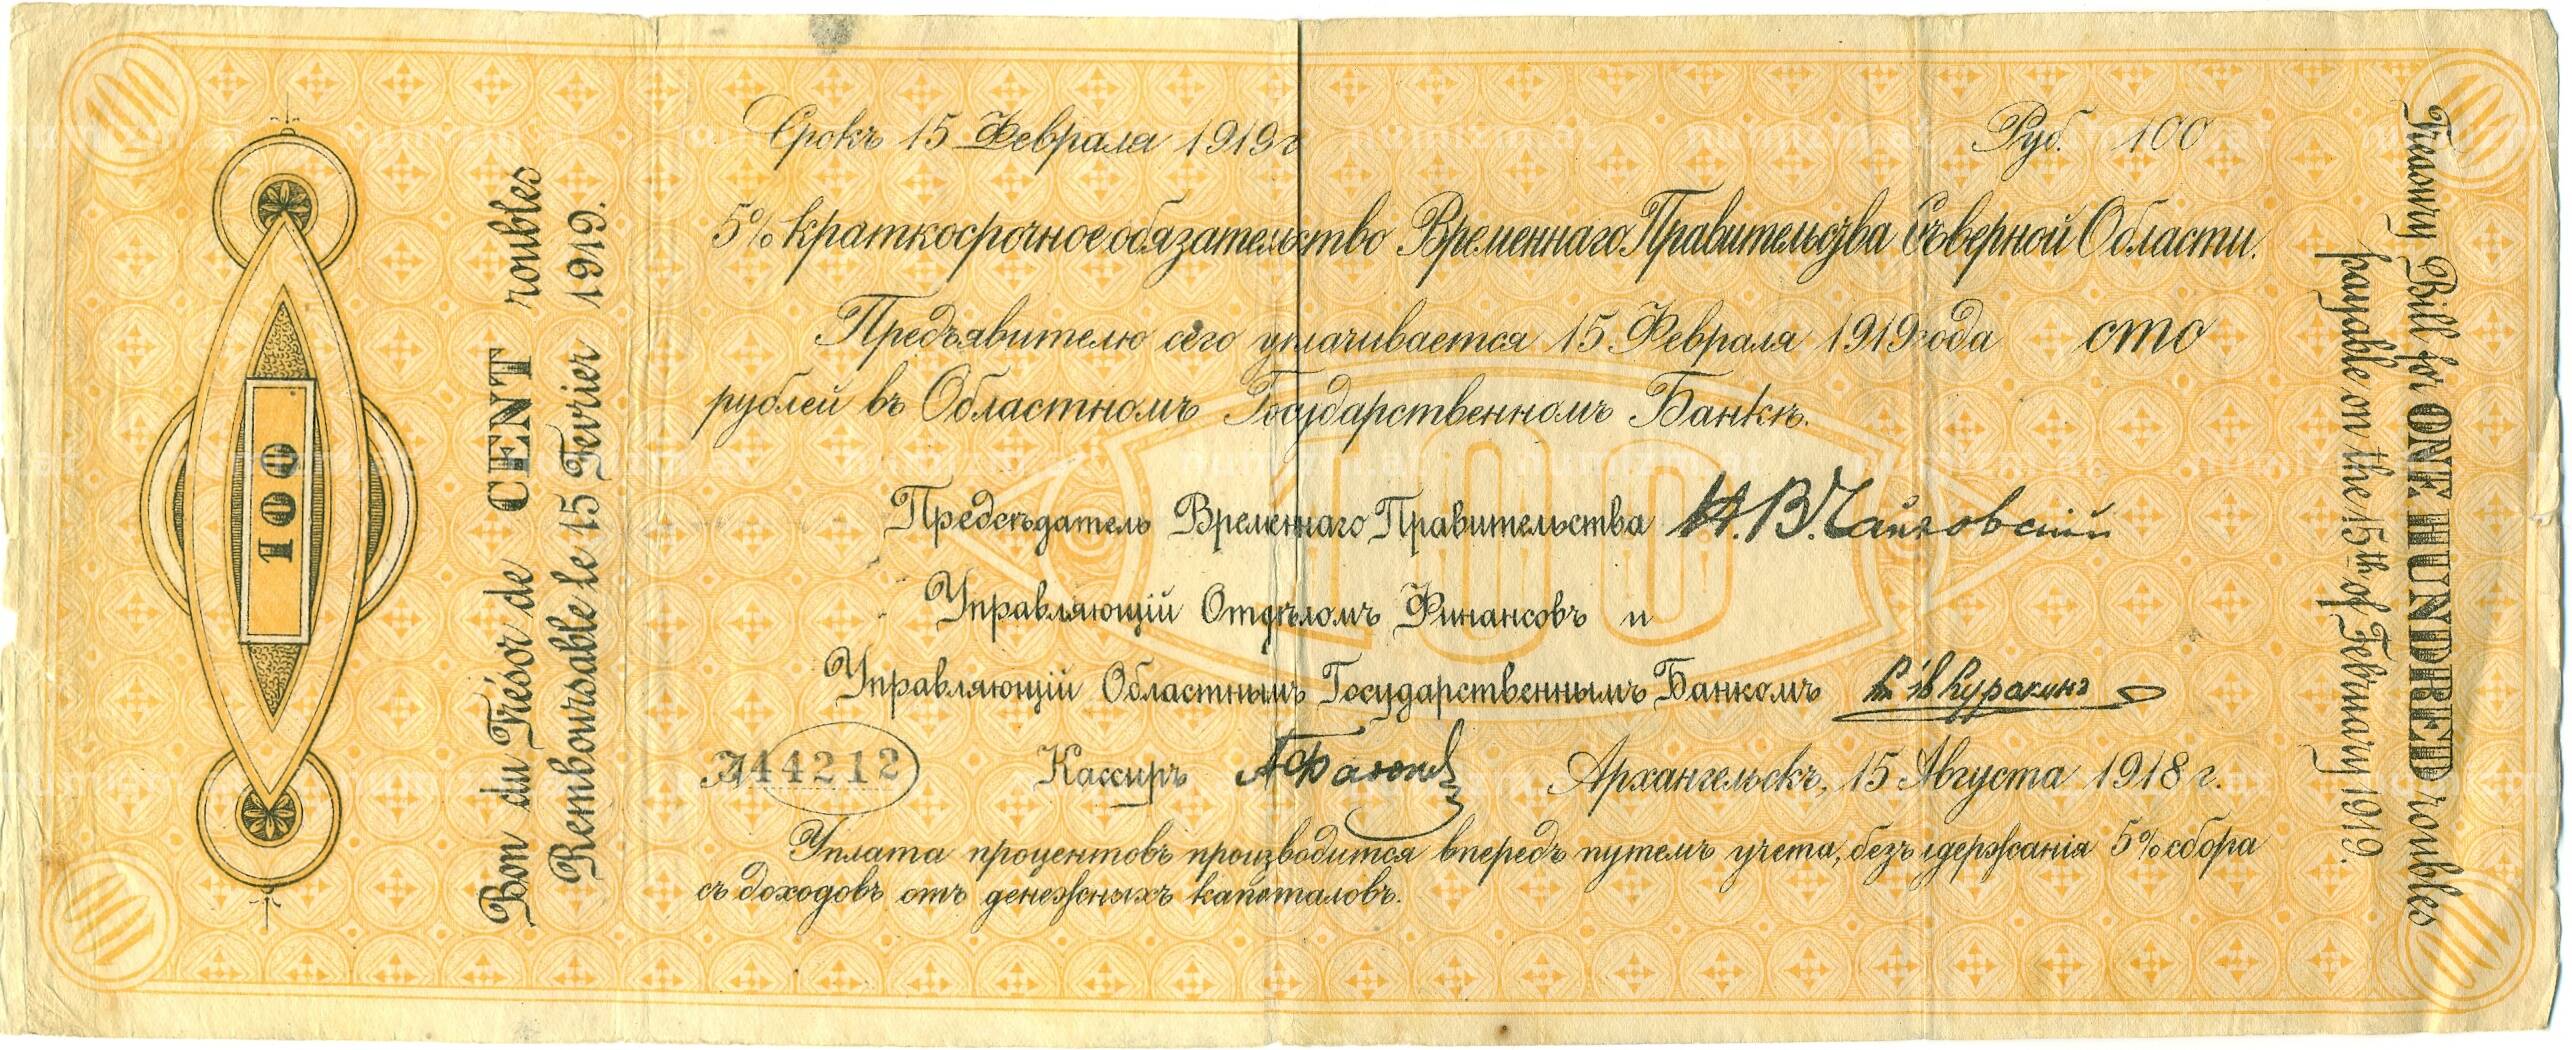 100
Bon du Trésor de CENT roubles
Remboursable le 15 Fevrier 1919.
Срокъ 15 Февраля 1919 г
Руб. 100
5% краткосрочное обязательство Временнаго Правительства Съверной Области.
Предъявителю сего уплачивается 15 Февраля 1919 года сто
рублей въ Областномъ Государственномъ Банкѣ.
100
Предсѣдатель Временнаго Правительства Н.В. Чайковскій
Управляющій Отдѣломъ Финансовъ и
Управляющій Областнымъ Государственнымъ Банкомъ Куракинъ
А 44212
Кассиръ
Архангельскъ, 15 Августа 1918 г.
Уплата процентовъ производится впередъ путемъ учета, безъ удержанія 5% сбора
съ доходовъ отъ денежныхъ капиталовъ.
Treasury Bill for ONE HUNDRED roubles
payable on the 15th of February 1919.